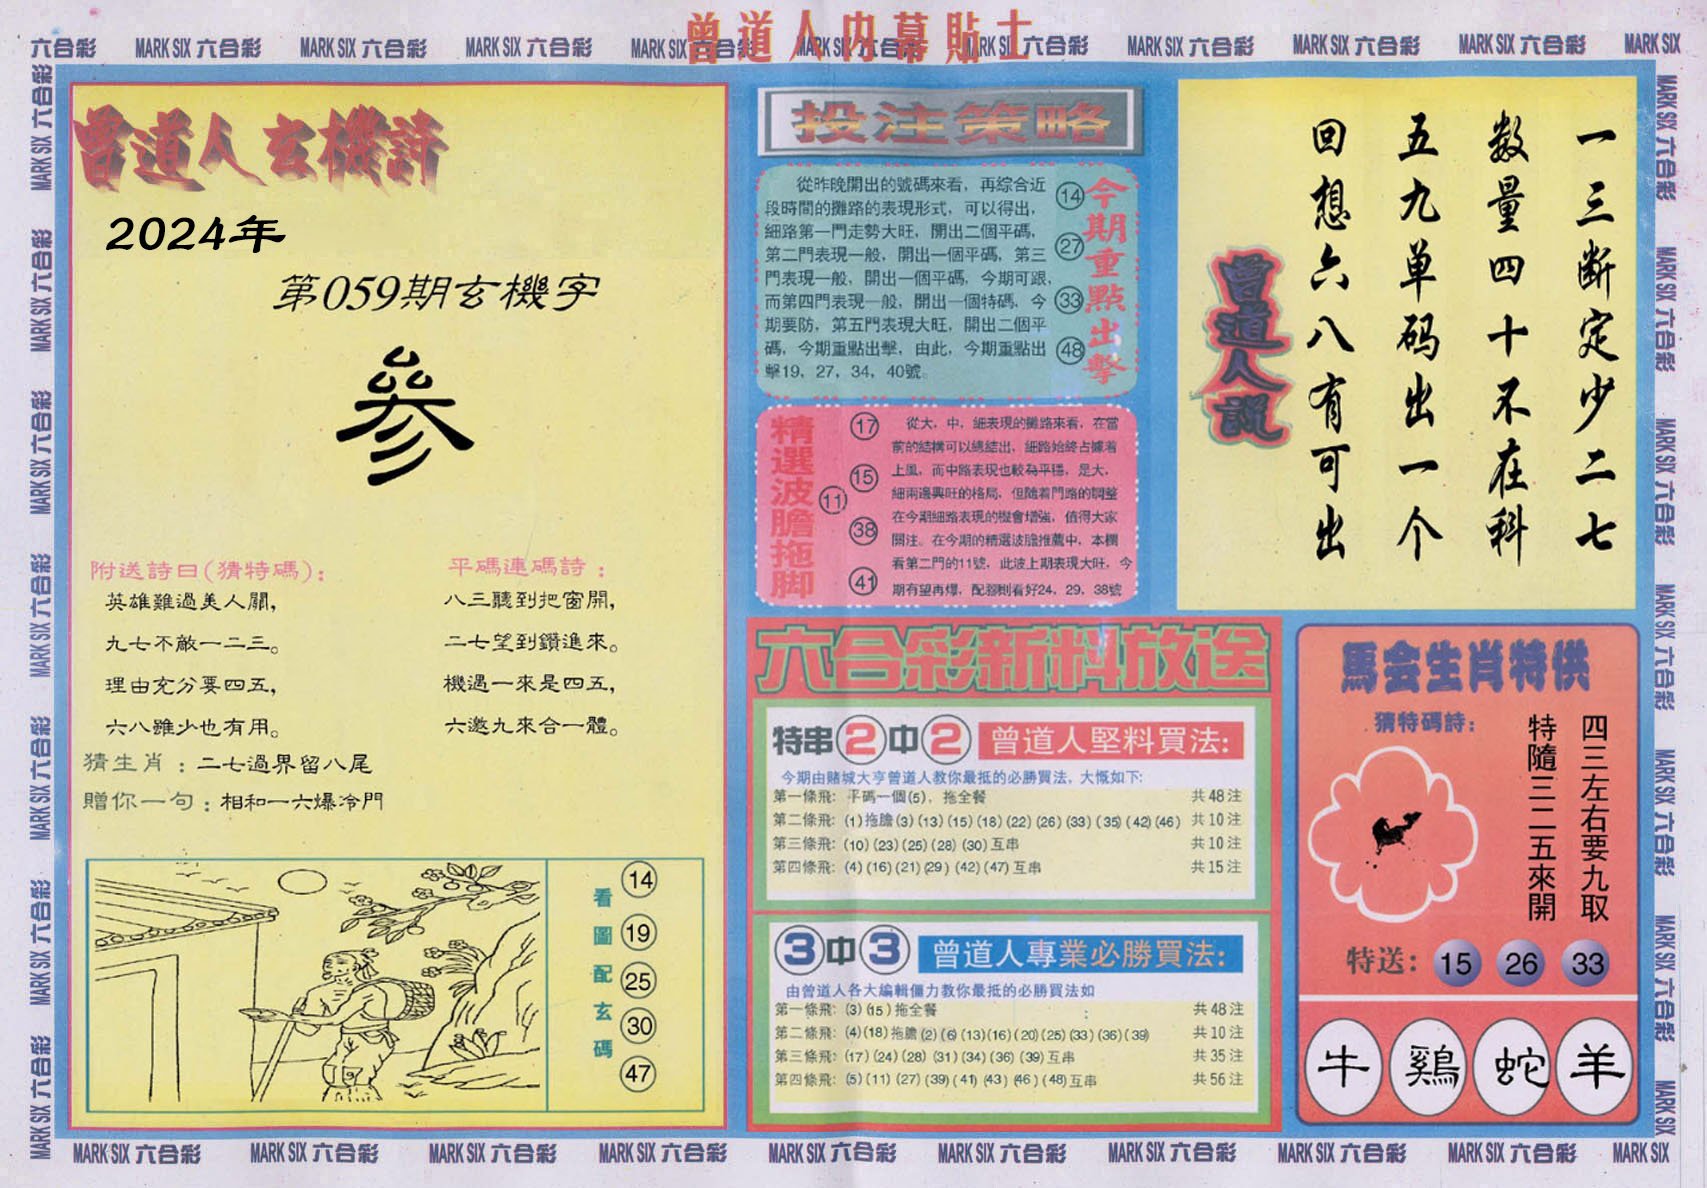 曾道人内幕貼士
六合彩 MARK SIX 六合彩 MARK SIX 六合彩 MARK SIX 六合彩 MARK SIX 六合彩 MARK SIX 六合彩 MARK SIX 六合彩 MARK SIX 六合彩 MARK SIX 六合彩 MARK SIX
曾道人玄機詩
2024年
第059期玄機字
參
附送詩曰(猜特碼)：
英雄難過美人關，
九七不敵一二三。
理由充分要四五，
六八雖少也有用。
平碼連碼詩：
八三聽到把窗開，
二七望到鑽進來。
機遇一來是四五，
六邀九來合一體。
猜生肖：二七過界留八尾
贈你一句：相和一六爆冷門
看圖配玄碼
14
19
25
30
47
投注策略
從昨晚開出的號碼來看，再綜合近
段時間的攤路的表現形式，可以得出，
細路第一門走勢大旺，開出二個平碼，
第二門表現一般，開出一個平碼，第三
門表現一般，開出一個平碼，今期可跟，
而第四門表現一般，開出一個特碼，今
期要防，第五門表現大旺，開出二個平
碼，今期重點出擊，由此，今期重點出
擊19，27，34，40號。
14
27
33
48
今期重點出擊
精選波膽拖脚
17
15
11
38
41
從大，中，細表現的攤路來看，在當
前的結構可以總結出，細路始終占據着
上風，而中路表現也較為平穩，是大，
細兩邊興旺的格局，但隨着門路的調整
在今期細路表現的機會增強，值得大家
關注。在今期的精選波膽推薦中，本欄
看第二門的11號，此波上期表現大旺，今
期有望再爆，配脚則看好24，29，38號
曾道人説
一三断定少二七
数量四十不在科
五九单码出一个
回想六八有可出
六合彩新料放送
特串2中2 曾道人堅料買法:
今期由賭城大亨曾道人教你最抵的必勝買法，大慨如下:
第一條飛: 平碼一個(5)，拖全餐 共48注
第二條飛: (1)拖膽(3)(13)(15)(18)(22)(26)(33)(35)(42)(46) 共10注
第三條飛: (10)(23)(25)(28)(30)互串 共10注
第四條飛: (4)(16)(21)(29)(42)(47)互串 共15注
3中3 曾道人專業必勝買法:
由曾道人各大編輯僵力教你最抵的必勝買法如
第一條飛: (3)(15)拖全餐 共48注
第二條飛: (4)(18)拖膽(2)(6)(13)(16)(20)(25)(33)(36)(39) 共10注
第三條飛: (17)(24)(28)(31)(34)(36)(39)互串 共35注
第四條飛: (5)(11)(27)(39)(41)(43)(46)(48)互串 共56注
馬会生肖特供
猜特碼詩:
四三左右要九取
特隨三二五來開
特送: 15 26 33
牛 鷄 蛇 羊
MARK SIX 六合彩 MARK SIX 六合彩 MARK SIX 六合彩 MARK SIX 六合彩 MARK SIX 六合彩 MARK SIX 六合彩 MARK SIX 六合彩 MARK SIX 六合彩 MARK SIX 六合彩 MARK SIX
MARK SIX 六合彩 MARK SIX 六合彩 MARK SIX 六合彩 MARK SIX 六合彩 MARK SIX 六合彩 MARK SIX 六合彩 MARK SIX 六合彩
MARK SIX 六合彩 MARK SIX 六合彩 MARK SIX 六合彩 MARK SIX 六合彩 MARK SIX 六合彩 MARK SIX 六合彩 MARK SIX